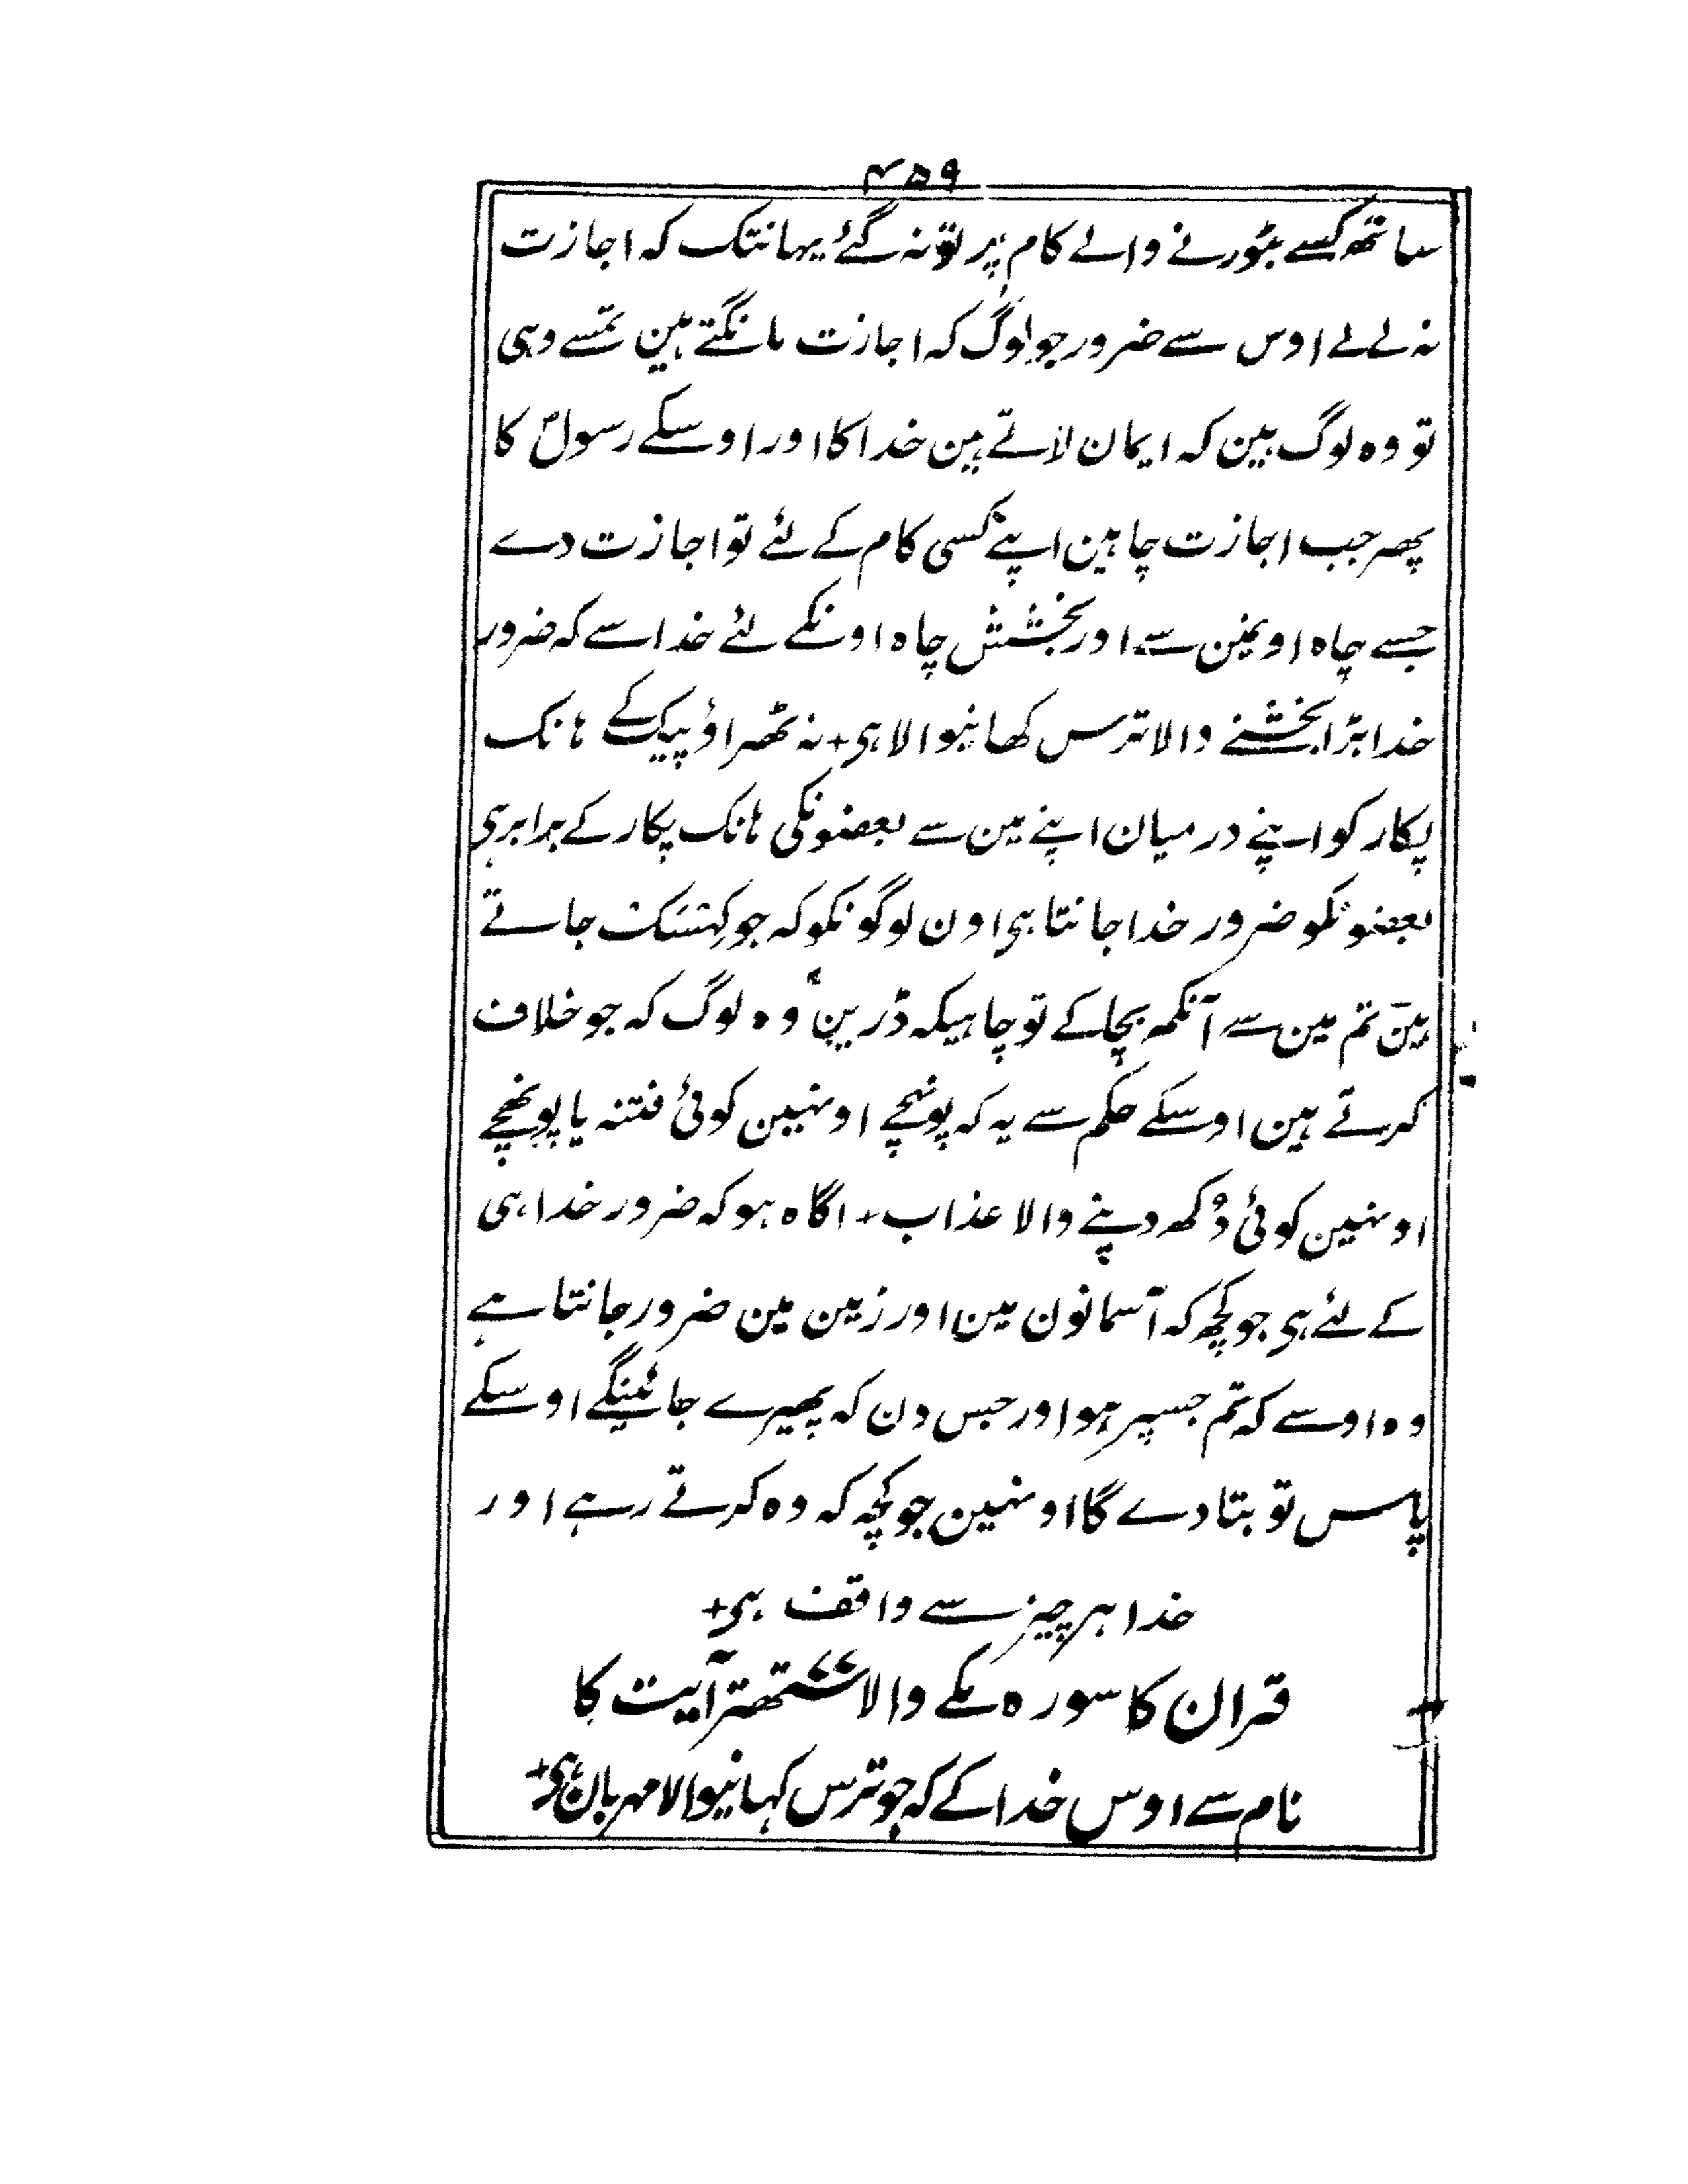 ۴۵۹
ساتھ کسے بٹورنے والے کام پر تو نہ گئے یہانتک کہ اجازت
نہ لے لے اوس سے ضرور جو لوگ کہ اجازت مانگتے ہین تمسے وہی
تو وہ لوگ ہین کہ ایمان لاتے ہین خدا کا اور اوسکے رسولؐ کا
پھر جب اجازت چاہین اپنے کسی کام کے لئے تو اجازت دے
جسے چاہ اونمین سے اور بخشش چاہ اونکے لئے خدا سے کہ ضرور
خدا بڑا بخشنے والا ترس کھانیوالا ہی + نہ ٹھراؤ پیک کے ہانک
پکار کو اپنے درمیان اپنے مین سے بعضونکی ہانک پکار کے برابر ہی
بعضونکو ضرور خدا جانتا ہی اون لوگونکو کہ جو کہسک جاتے
ہین تم مین سے آنکھ بچا کے تو چاہیکہ ڈرین وہ لوگ کہ جو خلاف
کرتے ہین اوسکے حکم سے یہ کہ پونہچے اونہین کوئی فتنہ یا پونہچے
اونہین کوئی دُکھ دینے والا عذاب + اگاہ ہو کہ ضرور خدا ہی
کے لئے ہی جو کچھ کہ آسمانون مین اور زمین مین ضرور جانتا ہے
وہ اوسے کہ تم جسپر ہو اور جس دن کہ پھیرے جائینگے اوسکے
پاس تو بتا دے گا اونہین جو کچہ کہ وہ کرتے رہے اور
خدا ہر چیز سے واقف ہی +
قران کا سورہ مکے والا ستھتر آیت کا
نام سے اوس خدا کے کہ جو ترس کہانیوالا مہربان ہی +